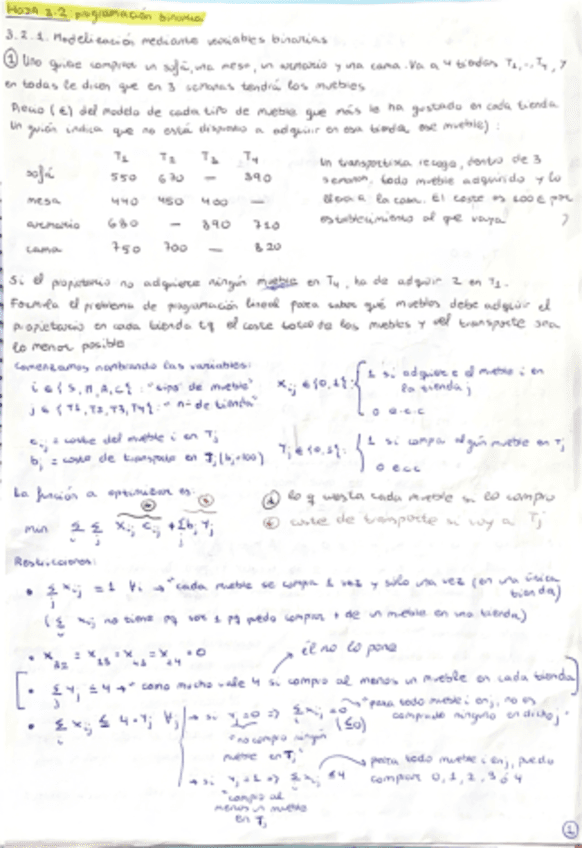 HOJA 3.2: programación binaria
3.2.1. Modelización mediante variables binarias
① Uno quiere comprar un sofá, una mesa, un armario y una cama. Va a 4 tiendas T1,..,T4, y
en todas le dicen que en 3 semanas tendrá los muebles
Precio (€) del modelo de cada tipo de mueble que más le ha gustado en cada tienda
Un guión indica que no está dispuesto a adquirir en esa tienda ese mueble):
T1 T2 T3 T4
sofá 550 670 — 890
mesa 440 450 400 —
armario 680 — 890 710
cama 750 700 — 820
Un transportista recoge, dentro de 3
semanas, todo mueble adquirido y lo
lleva a la casa. El coste es 100 € por
establecimiento al que vaya
Si el propietario no adquiere ningún mueble en T4, ha de adquirir 2 en T1.
Formula el problema de programación lineal para saber qué muebles debe adquirir el
propietario en cada tienda tq el coste total de los muebles y del transporte sea
lo menor posible
Comenzamos nombrando las variables:
i ∈ {S, M, A, C}: "tipo de mueble"
j ∈ {T1, T2, T3, T4}: "nº de tienda"
xij ∈ {0,1}: { 1 si adquiere el mueble i en
la tienda j
0 e.c.c
cij = coste del mueble i en Tj
bj = coste de transporte en Tj (bj=100)
Yj ∈ {0,1}: { 1 si compra algún mueble en Tj
0 ecc
La función a optimizar es:
min Σi Σj xij cij + Σj bj Yj
lo q cuesta cada mueble si lo compro
coste de transporte si voy a Tj
Restricciones:
• Σj xij = 1 ∀i → "cada mueble se compra 1 vez y sólo una vez (en una única
tienda)
(Σi xij no tiene pq ser 1 pq puedo comprar + de un mueble en una tienda)
• x32 = x13 = x43 = x24 = 0
él no lo pone
• Σj Yj ≤ 4 → "como mucho vale 4 si compro al menos un mueble en cada tienda
• Σi xij ≤ 4·Yj ∀j
→ si Yj=0 => Σi xij = 0 (≤0)
"para todo mueble i en j, no es
comprado ninguno en dicho j"
"no compro ningún
mueble en Tj"
→ si Yj=1 => Σi xij ≤ 4
para todo mueble i en j, puedo
comprar 0, 1, 2, 3 ó 4
"compro al
menos un mueble
en Tj
①